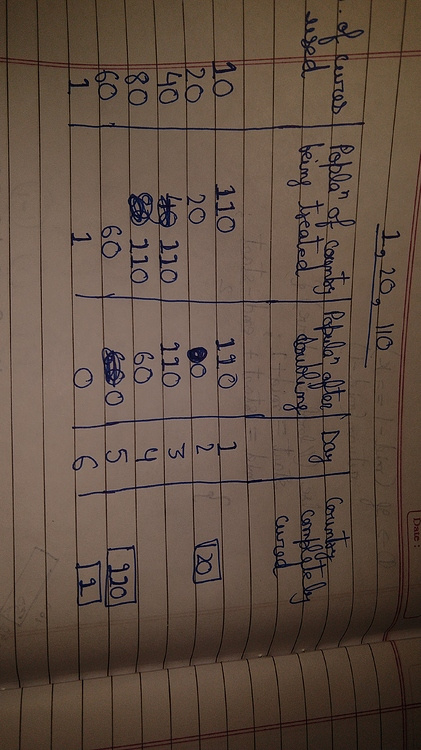 1, 20, 110
. of cures used | Popla'n of county being treated | Popla'n after doubling | Day | Country completely cured
10 | 110 | 110 | 1
20 | 20 | 0 | 2 | 20
40 | 110 | 110 | 3
80 | 110 | 60 | 4
60 | 60 | 0 | 5 | 110
1 | 1 | 0 | 6 | 1
Date: